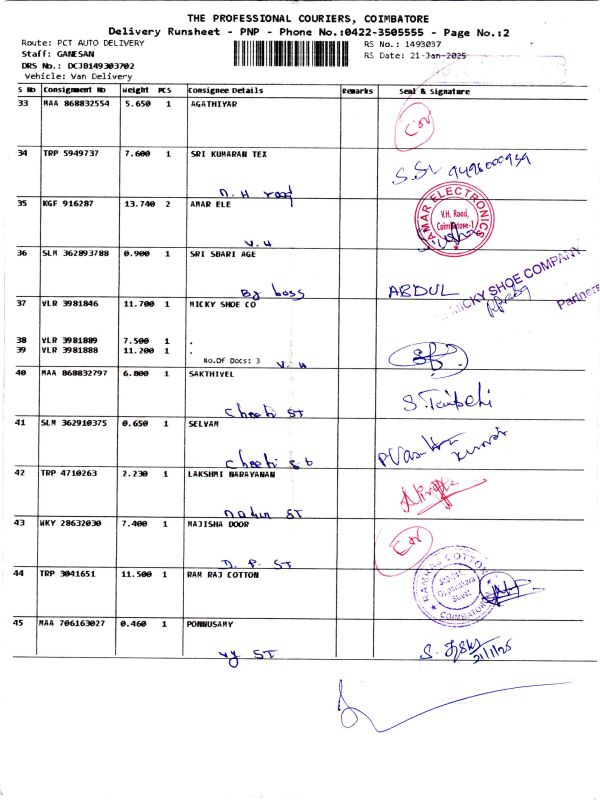 THE PROFESSIONAL COURIERS, COIMBATORE
Delivery Runsheet - PNP - Phone No.:0422-3505555 - Page No.:2
Route: PCT AUTO DELIVERY RS No.: 1493037
Staff: GANESAN RS Date: 21-Jan-2025
DRS No.: DCJB149303702
Vehicle: Van Delivery
S No Consignment No Weight PCS Consignee Details Remarks Seal & Signature
33 MAA 868832554 5.650 1 AGATHIYAR
34 TRP 5949737 7.600 1 SRI KUMARAN TEX
N. H road
35 KGF 916287 13.740 2 AMAR ELE
AMAR ELECTRONICS
V.H. Road,
Coimbatore-1
V. H
36 SLM 362893788 0.900 1 SRI SBARI AGE
ABDUL
37 VLR 3981846 11.700 1 MICKY SHOE CO
MICKY SHOE COMPANY
Partners
38 VLR 3981889 7.500 1 .
39 VLR 3981888 11.200 1 .
No.Of Docs: 3
V. H
40 MAA 868832797 6.800 1 SAKTHIVEL
41 SLM 362910375 0.650 1 SELVAM
42 TRP 4710263 2.230 1 LAKSHMI NARAYANAN
43 WKY 28632030 7.400 1 MAJISHA DOOR
D. P. ST
44 TRP 3041651 11.500 1 RAM RAJ COTTON
RAMRAJ COTTON
Street
COIMBATORE
45 MAA 706163027 0.460 1 PONNUSAMY
VY ST
21/1/25